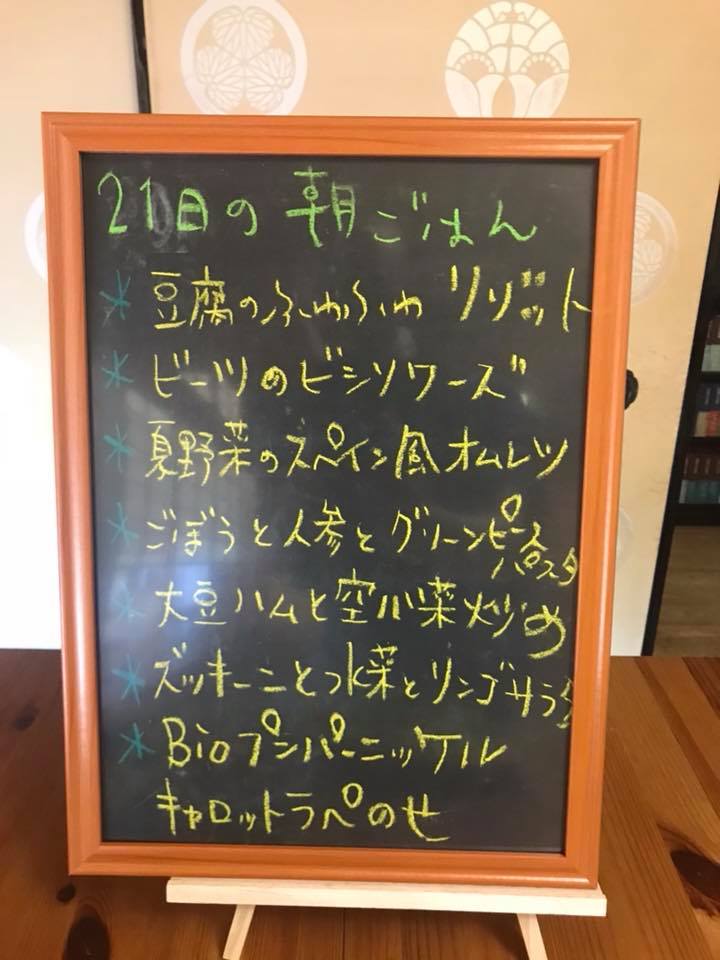 21日の朝ごはん
* 豆腐のふわふわリゾット
* ビーツのビシソワーズ
* 夏野菜のスペイン風オムレツ
* ごぼうと人参とグリーンピース
パスタ
* 大豆ハムと空心菜炒め
* ズッキーニと水菜とリンゴサラダ
* Bioプンパーニッケル
キャロットラペのせ